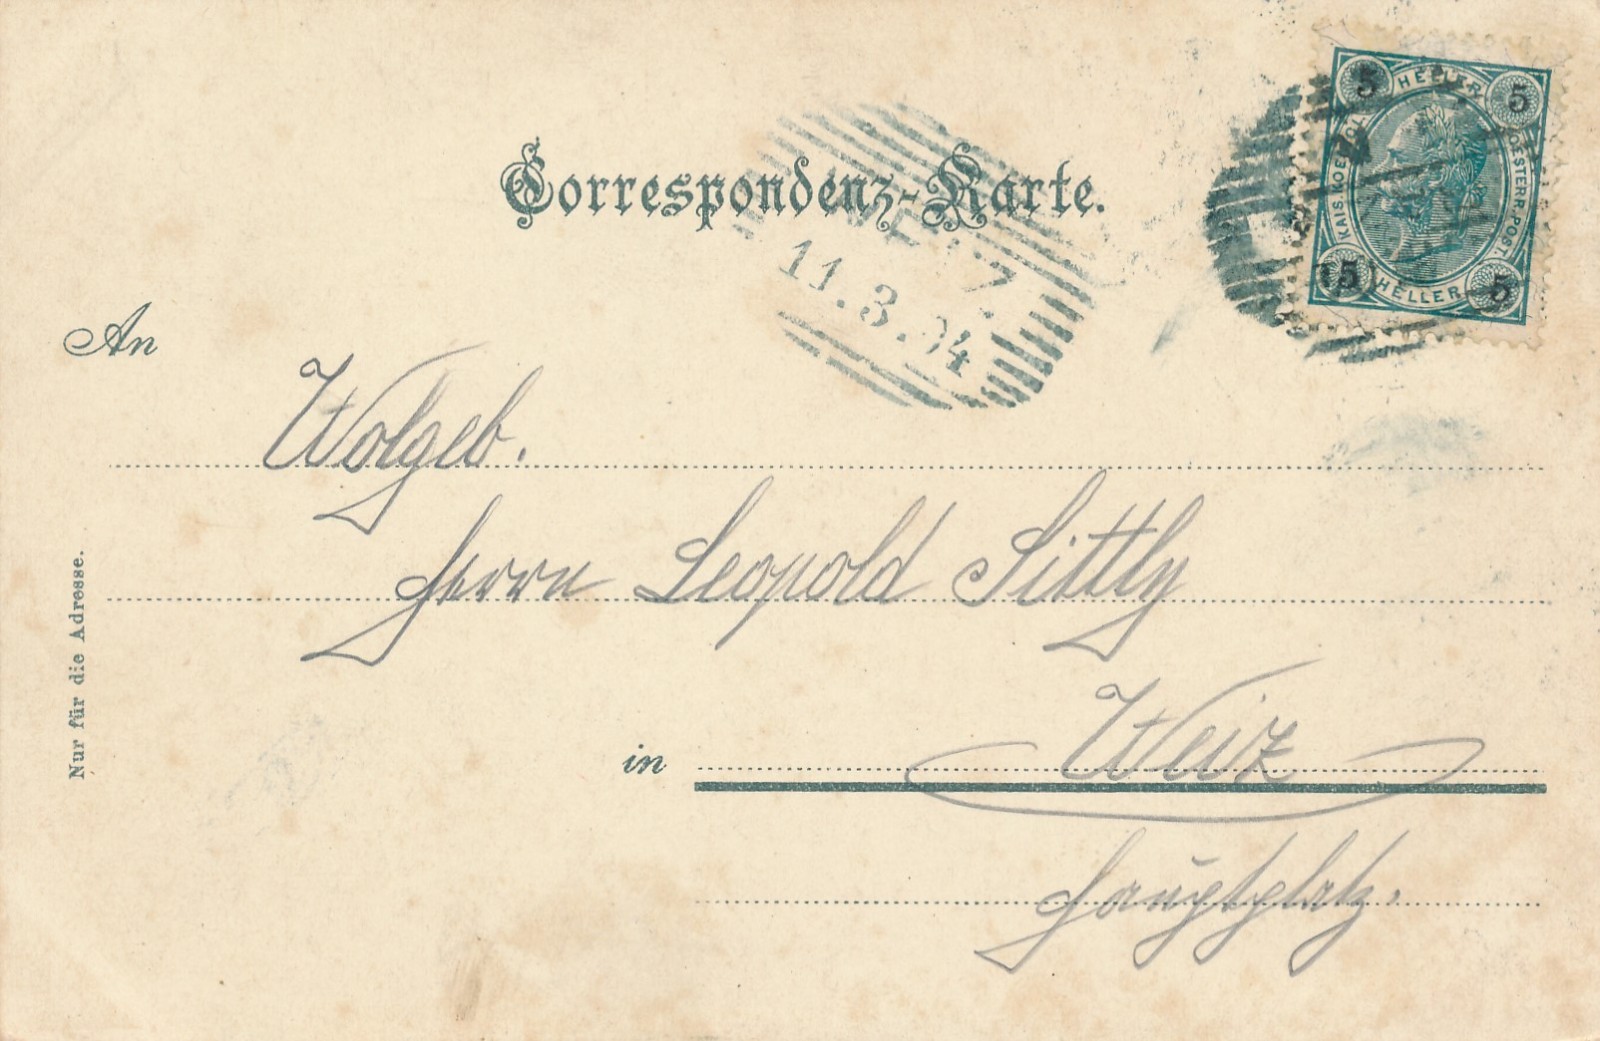 Correspondenz-Karte.
5 HELLER 5
KAIS. KOE
OESTERR. POST
5 HELLER 5
11.3.04
An
Wolgeb.
Herrn Leopold Sittly
in Weiz
Hauptplatz.
Nur für die Adresse.